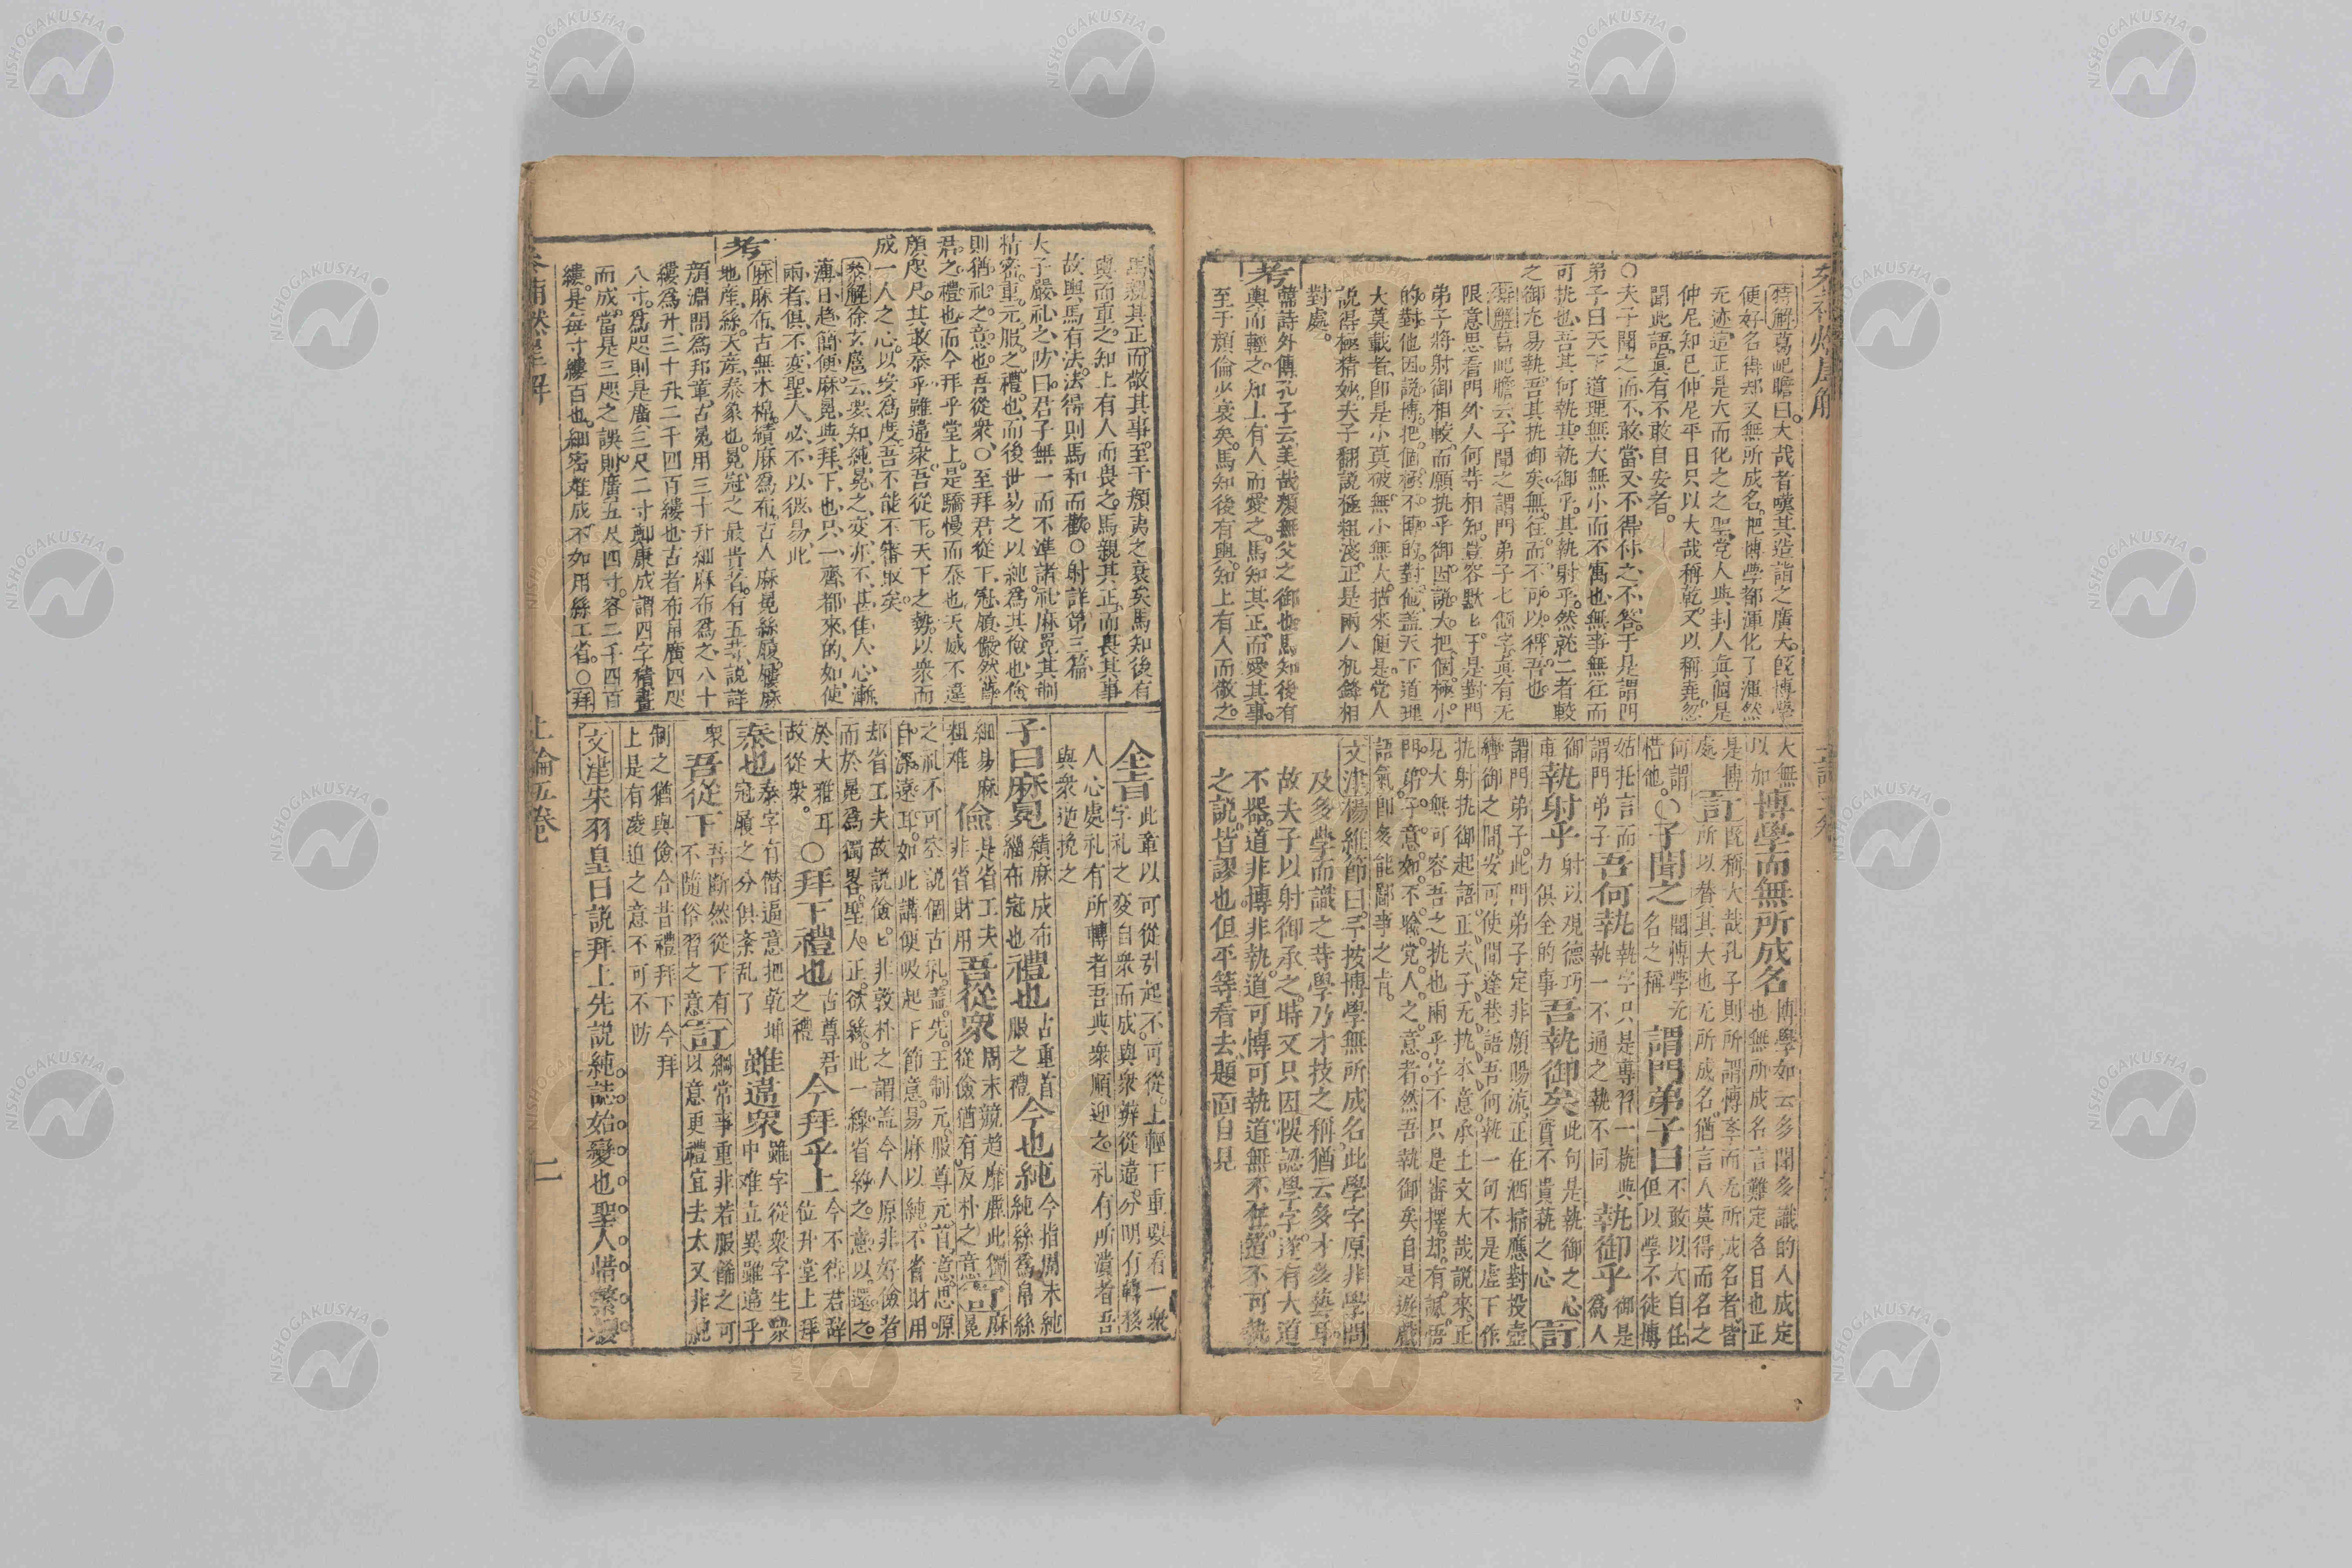 特解葛屺瞻曰大哉者嘆其造詣之廣大旣博學
便好名得却又無所成名把博學都渾化了渾然
无迹這正是大而化之之聖党人與封人眞個是
仲尼知已仲尼平日只以大哉稱乾又以稱堯忽
聞此語眞有不敢自安者
○夫子聞之而不敢當又不得付之不答于是謂門
弟子曰天下道理無大無小而不寓也無事無往而
可执也吾其何执其執御乎其執射乎然就二者較
之御尤易執吾其执御矣無往而不可以得吾也
葛屺瞻云子聞之謂門弟子七個字眞有无
限意思看門外人何等相知豈容默匕于是對門
弟子將射御相較而願执乎御因說大把個極小
的對他因說博把個極不博的對他蓋天下道理
大莫載者卽是小莫破無小無大揩來便是党人
說得極精妙夫子翻說極粗淺正是兩人机鋒相
對處
考
韓詩外傳孔子云美哉顏無父之御也馬知後有
輿而輕之知上有人而愛之馬知其正而愛其事
至于顏倫少衰矣馬知後有輿知上有人而敬之
大無以加博學而無所成名博學如云多聞多識的人成定也無所成名言難定各目也正
是博處訂旣稱大哉孔子則所謂博學而无所成名者皆所以贊其大也无所成名猶言人莫得而名之
何謂惜他○子聞之聞博學无名之稱謂門弟子曰不敢以大自任但以學不徒博
姑托言而謂門弟子吾何執執字只是專習一執與執一不通之執不同執御乎御是為人
御甫執射乎射以观德巧力俱全的事吾執御矣此句是執御之心實不貴藝之心訂
謂門弟子此門弟子定非顏陽流正在洒掃應對投壺
轡御之間安可使聞達巷語吾何執一句不是虛下作
执射执御起語正夫子无执本意承上文大哉說來正
見大無可容吾之执也兩乎字不只是審擇却有諷悟
門弟子意如不喻党人之意者然吾執御矣自是遊戲
語氣卽多能鄙事之旨
文津楊維節曰予按博學無所成名此學字原非學問
及多學而識之等學乃才技之稱猶云多才多藝耳
故夫子以射御承之時又只因悞認學字遂有大道
不器道非博非執道可博可執道無不在道不可執
之說皆謬也但平等看去題面自見
馬親其正而敬其事至于顏夷之衰矣馬知後有
輿而重之知上有人而畏之馬親其正而畏其事
故輿馬有法法得則馬和而歡○射詳第三篇
大子嚴礼之防曰君子無一而不準諸礼麻冕其制
精密重元服之禮也而後世易之以純為其儉也儉
則猶礼之意也吾從衆○至拜君從下冠履儼然薄
君之禮也而今拜乎堂上是驕慢而泰也天威不違
顏咫尺其敢泰乎雖違衆吾從下天下之勢以衆而
成一人之心以安為度吾不能不審取矣
叅解徐玄扈云要知純冕之变亦不甚佳人心漸
薄日趋簡便麻冕與拜下也只一齊都來的如使
兩者俱不变聖人必不以彼易此
考
麻麻布古無木棉績麻為布古人麻冕絲履麻
地產絲天產泰象也冕冠之最貴者有五等說詳
顏淵問為邦章古冕用三十升細麻布為之八十
縷為升三十升二千四百縷也古者布帛廣四咫
八寸為咫則是廣三尺二寸鄭康成謂四字積畫
而成當是三咫之誤則廣五尺四寸容二千四百
縷是每寸縷百也細密难成不如用絲工省○拜
全旨此章以可從引起不可從上輕下重要看一衆字礼之变自衆而成與衆辨從違分明有轉移
人心處礼有所轉者吾與衆順迎之礼有所潰者吾與衆逆挽之
子曰麻冕績麻成布緇布冠也禮也古重首服之禮今也純今指周末純純絲為帛絲
細易麻粗难儉是省工夫非省財用吾從衆周末競趋靡麗此獨從儉猶有反朴之意訂麻冕
之礼不可空說個古礼蓋先王制元服尊元首意思原
自深遠耳如此講便吸起下節意易麻以純不省財用
却省工夫故說儉匕非敦朴之謂蓋今人原非好儉者
而於冕為獨畧聖人正欲絲此一線省約之意以還之
於大雅耳故從衆○拜下禮也古尊君之禮今拜乎上今不待君辞位升堂上拜
泰也泰字有僭逼意把乾坤冠履之分俱紊乱了雖違衆雖字從衆字生衆中难立異雖違乎
衆吾從下吾断然從下有不隨俗習之意訂綱常事重非若服餙之可以意更禮宜去太又非純
制之猶與儉合昔禮拜下今拜
上是有凌迫之意不可不防
文津宋羽皇曰說拜上先說純誌始變也聖人惜繁
上論五卷
二